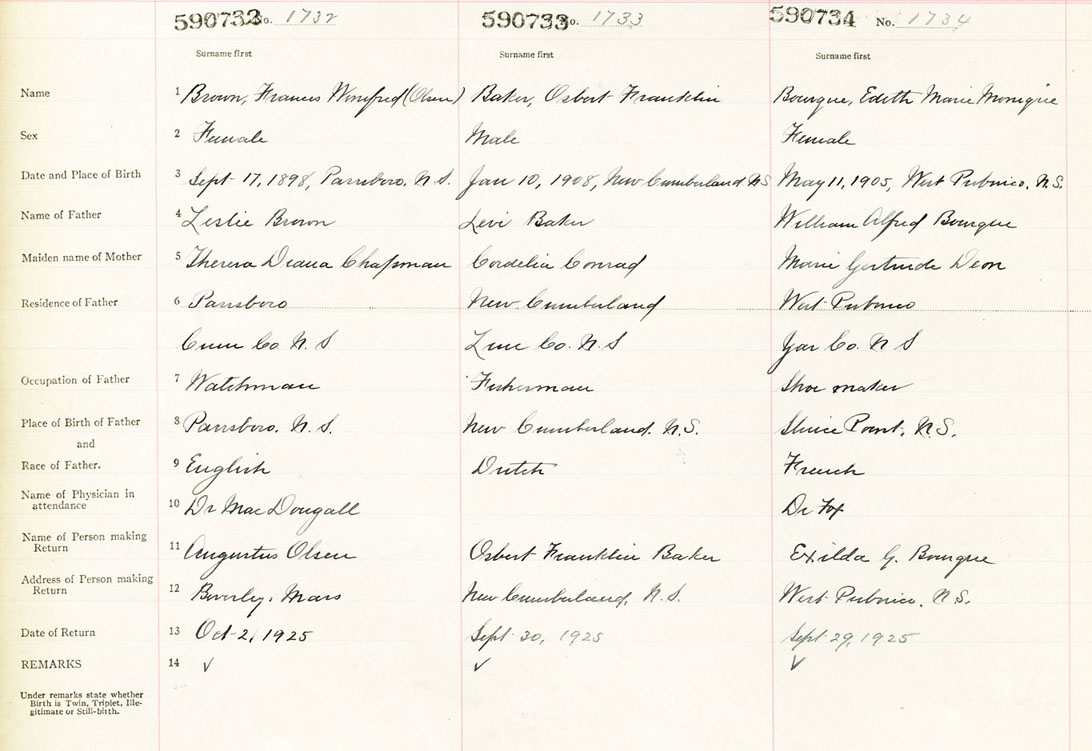 590732 No. 1732 590733 No. 1733 590734 No. 1734
Surname first Surname first Surname first
Name 1 Brown, Frances Winnifred (Olsen) Baker, Osbert Franklin Bourque, Edith Marie Monique
Sex 2 Female Male Female
Date and Place of Birth 3 Sept 17, 1898, Parrsboro, N.S. Jan 10, 1908, New Cumberland NS May 11, 1905, West Pubnico, N.S.
Name of Father 4 Leslie Brown Levi Baker William Alfred Bourque
Maiden name of Mother 5 Theresa Diana Chapman Cordelia Conrad Marie Gertrude Deon
Residence of Father 6 Parrsboro New Cumberland West Pubnico
Cum Co N.S Lun Co. N.S Yar Co. N S
Occupation of Father 7 Watchman Fisherman Shoe maker
Place of Birth of Father 8 Parrsboro, N.S. New Cumberland. N.S. Sluice Point, N.S.
and
Race of Father. 9 English Dutch French
Name of Physician in
attendance 10 Dr MacDougall Dr Fox
Name of Person making
Return 11 Augustus Olsen Osbert Franklin Baker Exilda G. Bourque
Address of Person making
Return 12 Beverly, Mass New Cumberland, N.S. West Pubnico, N.S.
Date of Return 13 Oct 2, 1925 Sept 30, 1925 Sept 29, 1925
REMARKS 14 ✓ ✓ ✓
Under remarks state whether
Birth is Twin, Triplet, Ille-
gitimate or Still-birth.